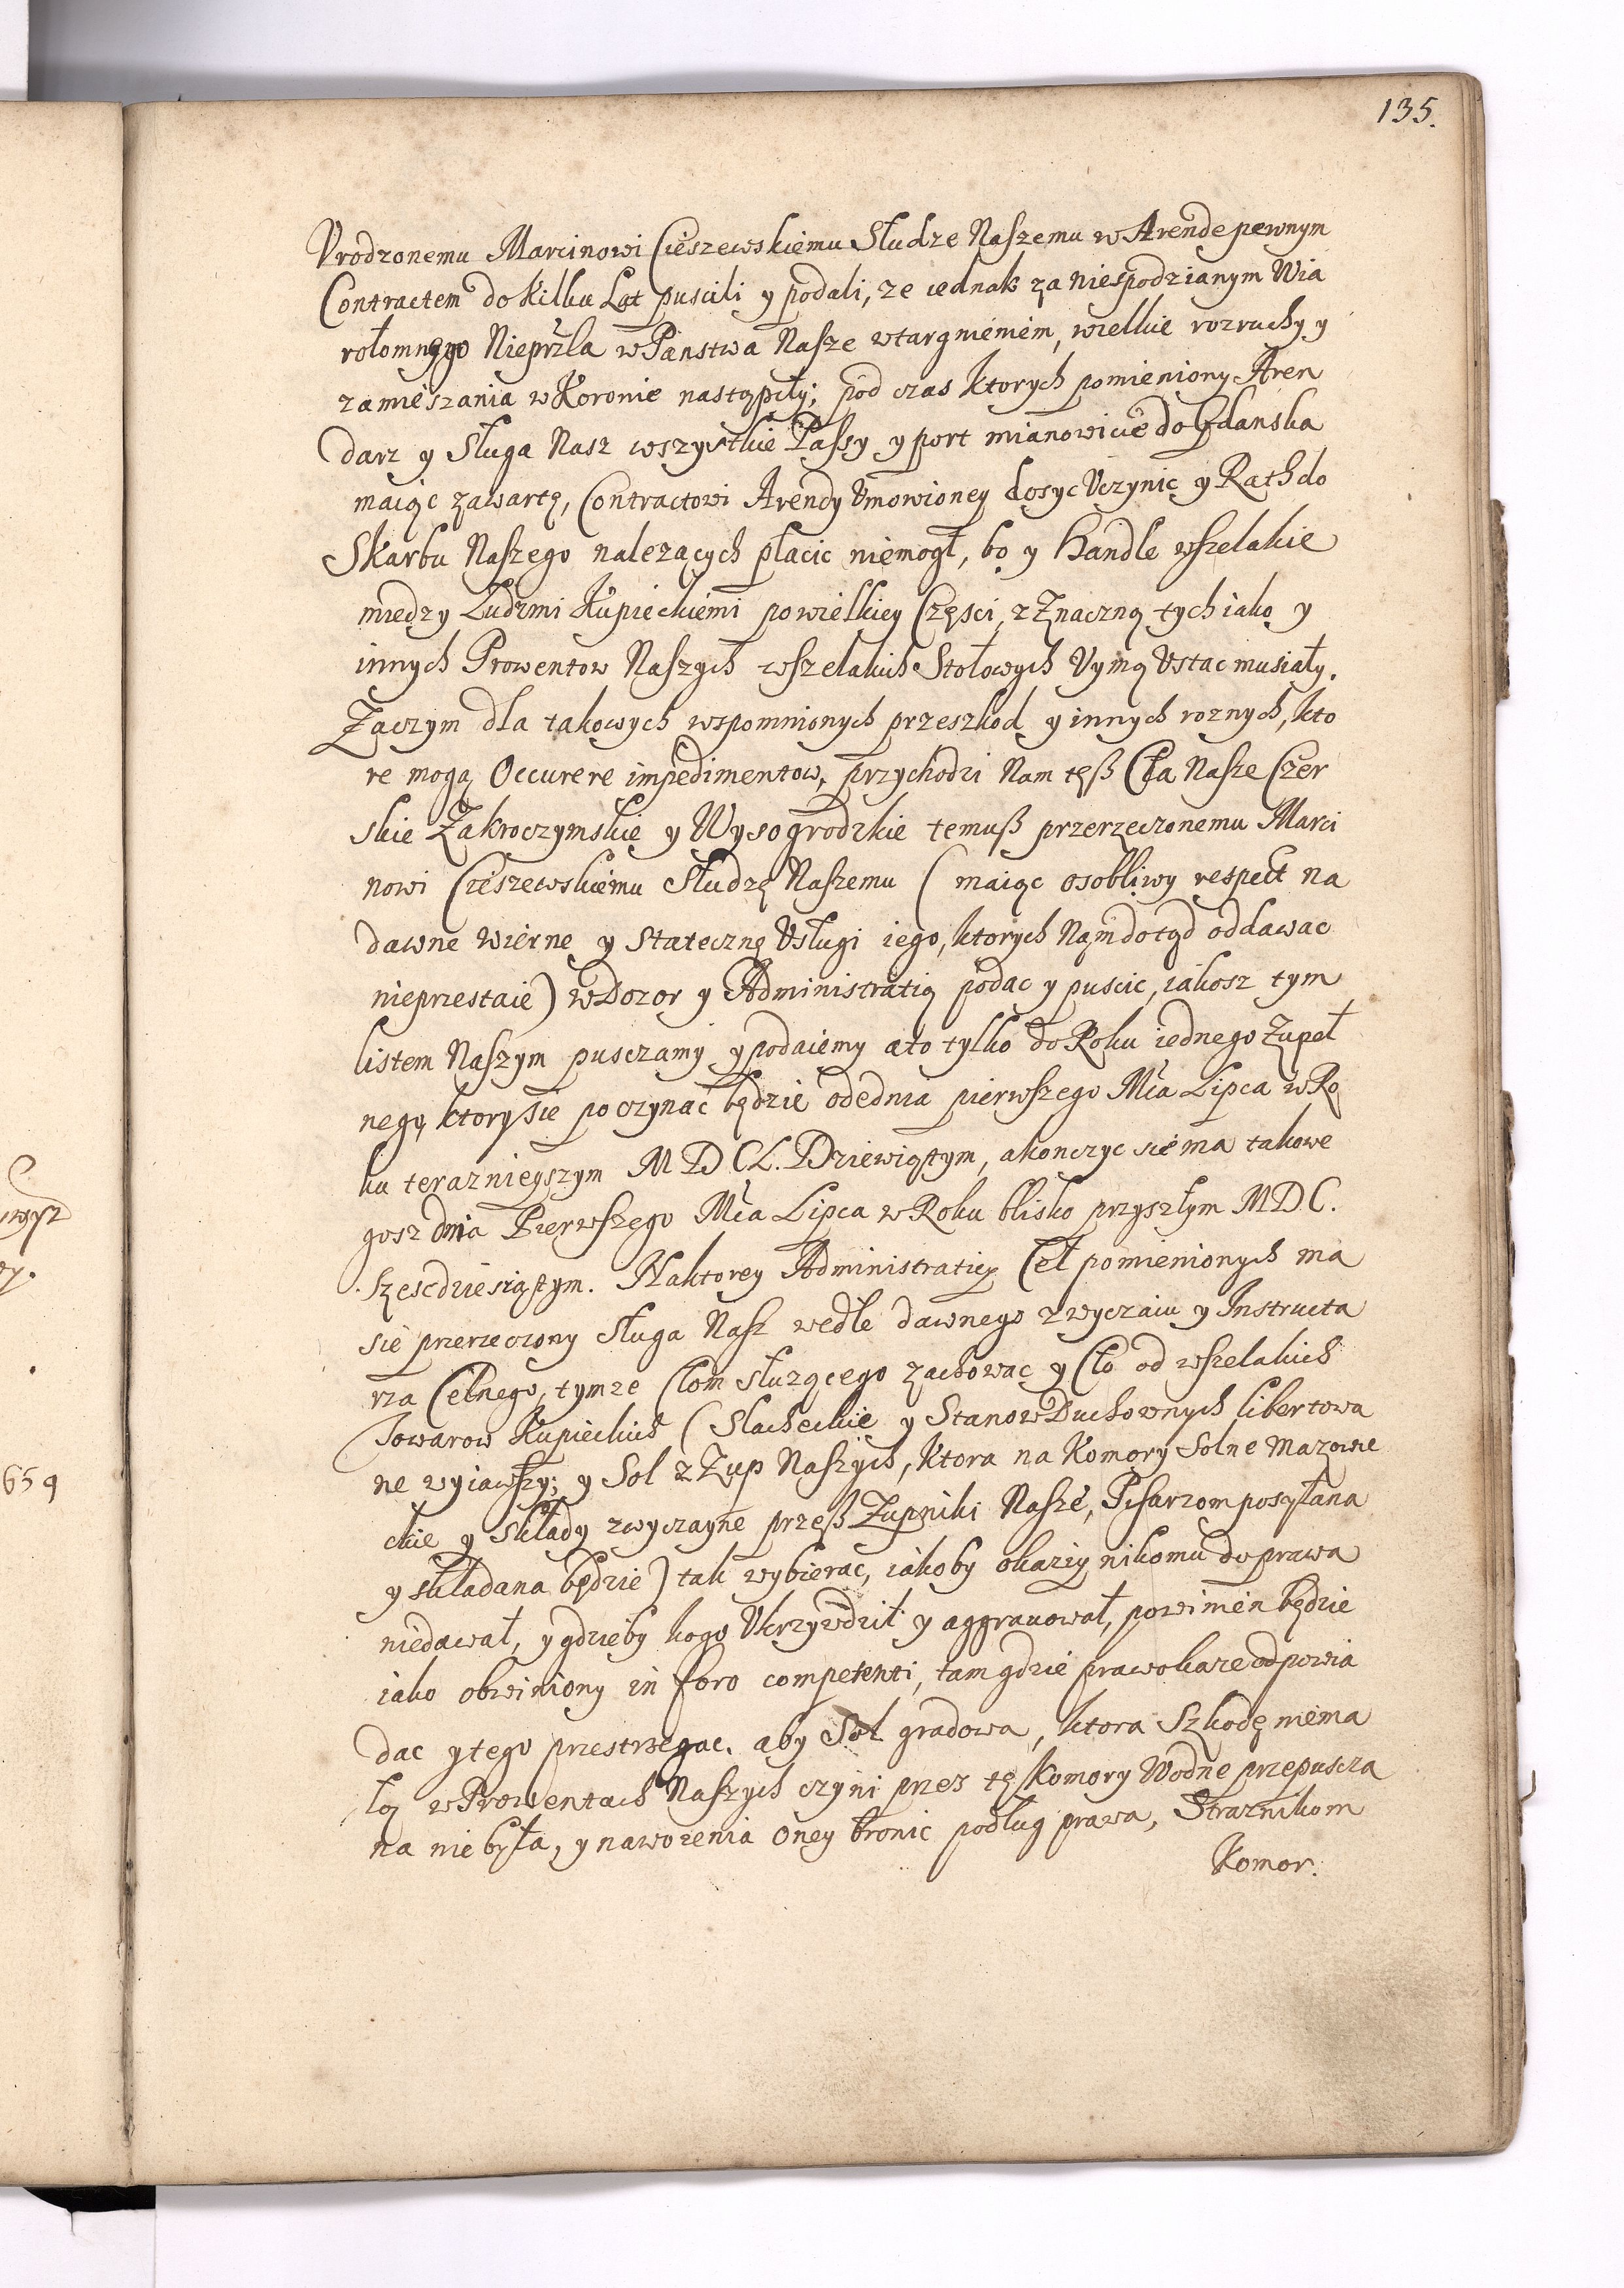 135.
Vrodzonemu Marcinowi Cieszewskiemu Słudze Naszemu w Arende pewnym
Contractem do kilku Lat puscili y podali, ze iednak za niespodzianym Wia
rołomnego Nieprzla w Panstwa Nasze wtargnieniem, wielkie rozruchy y
zamieszania w Koronie nastąpiły; pod czas ktorych pomieniony Aren
darz y Sługa Nasz wszystkie Passy y port mianowicie do Gdanska
maiąc zawartę, Contractowi Arendy Vmowioney dosyc Vczynic y Rath do
Skarbu Naszego nalezących płacic niemogł, bo y Handle wszelakie
miedzy Ludzmi Kupieckiemi powielkiey Częsci, z Znaczną tych iako y
innych Prowentow Naszych wszelakich Stołowych Vymą Vstac musiały.
Zaczym dla takowych wspomnionych przeszkod y innych roznych, kto
re mogą Occurere impedimentow, przychodzi Nam tęß Cła Nasze Czer
skie Zakroczymskie y Wysogrodzkie temuß przerzeczonemu Marci
nowi Cieszewskiemu Słudzę Naszemu ( maiąc osobliwy respect na
dawne wierne y Statecznę Vsługi iego, ktorych Nam dotąd oddawac
nieprzestaie) w Dozor y Administratią podac y puscic, iakosz tym
listem Naszym pusczamy y podaiemy ato tylko do Roku iednego zupeł
nego, ktory sie poczynać będzie odednia pierwszego Mca Lipca w Ro
ku teraznieyszym M D CL. Dziewiątym, akonczyc sie ma takowe
gosz dnia Pierwszego Mca Lipca w Roku blisko przyszłym MDC.
Szescdziesiątym. Naktorey Administratiey Ceł pomienionych ma
sie przerzeczony Sługa Nasz wedle dawnego zwyczaiu y Instructa
rza Celnego, tymze Cłom słuzącego zachowac y Cło od wszelakich
Towarow Kupieckich (Slacheckie y Stanow Duchownych libertowa
ne wyiawszy; y Sol z Zup Naszych, ktora na Komory Solne Mazowie
ckie y Składy zwyczayne przeß Zupniki Nasze, Pisarzom posyłana
y składana będzie) tak wybierac, iakoby okaziy nikomu do prawa
niedawał, y gdzieby kogo Vkrzywdził y aggrauował, powinien będzie
iako obwiniony in foro competenti, tam gdzie prawo kaze odpowia
dac y tego przestrzegac. aby Sol gradowa, ktora Szkodę niema
łą w Prowentach Naszych czyni przez tę Komory Wodne przepuscza
na nie była, y nawozenia oney bronic podług prawa, Straznikom
Komor.
659